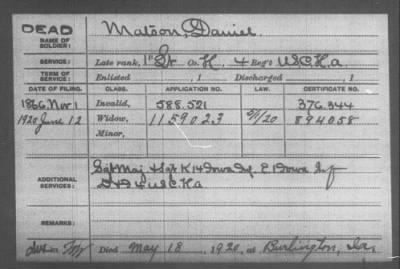 DEAD
NAME OF SOLDIER: Matson, Daniel
SERVICE: Late rank, 1" Co. H, 4 Reg't U.S.C.H.a
TERM OF SERVICE: Enlisted , 1 Discharged , 1
DATE OF FILING. CLASS. APPLICATION NO. LAW. CERTIFICATE NO.
Nov 1 Invalid, 588.521 376.344
1920 June 12 Widow, 1159023 894058
Minor,
ADDITIONAL SERVICES: Sgt Maj & Sgt K 14 Iowa Inf. E 1 Iowa Inf
4 U.S.C.H.a
REMARKS:
Died May 18, 1920, at Burlington, Ia.